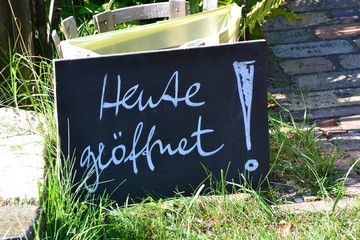 Heute
geöffnet!